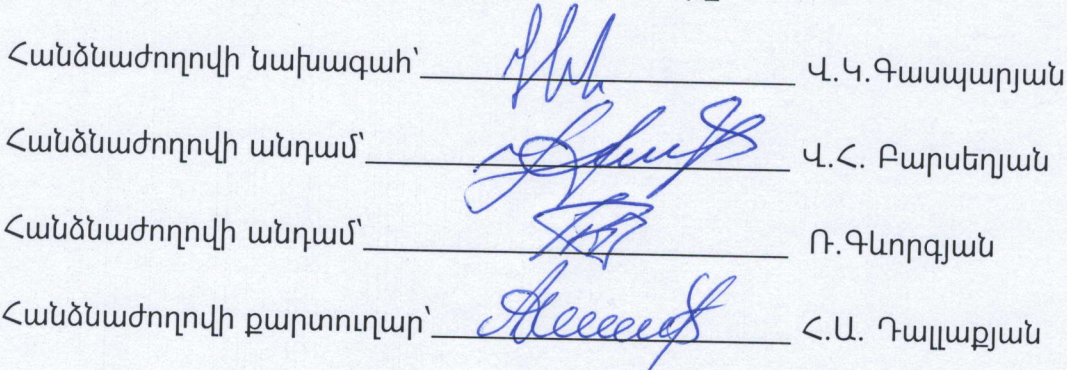 Հանձնաժողովի նախագահ՝ Վ.Կ.Գասպարյան
Հանձնաժողովի անդամ՝ Վ.Հ. Բարսեղյան
Հանձնաժողովի անդամ՝ Ռ.Գևորգյան
Հանձնաժողովի քարտուղար՝ Հ.Ա. Դալլաքյան